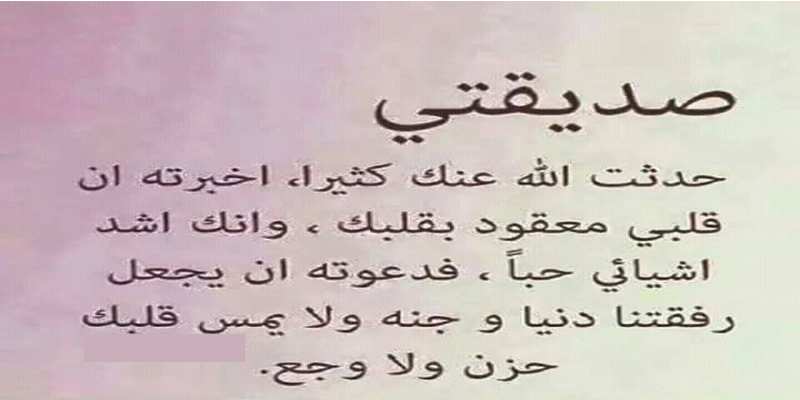 صديقتي
حدثت الله عنك كثيرا، اخبرته ان
قلبي معقود بقلبك ، وانك اشد
اشيائي حباً ، فدعوته ان يجعل
رفقتنا دنيا و جنه ولا يمس قلبك
حزن ولا وجع.